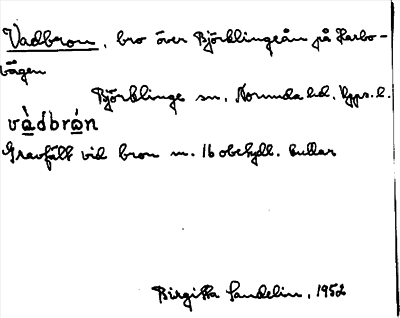 Vadbron, bro över Björklingeån på Harbo-
vägen
Björklinge sn, Norunda hd. Upps. l.
vàdbrón
Gravfält vid bron m. 16 obetydl. kullar
Birgitta Sandelin, 1952